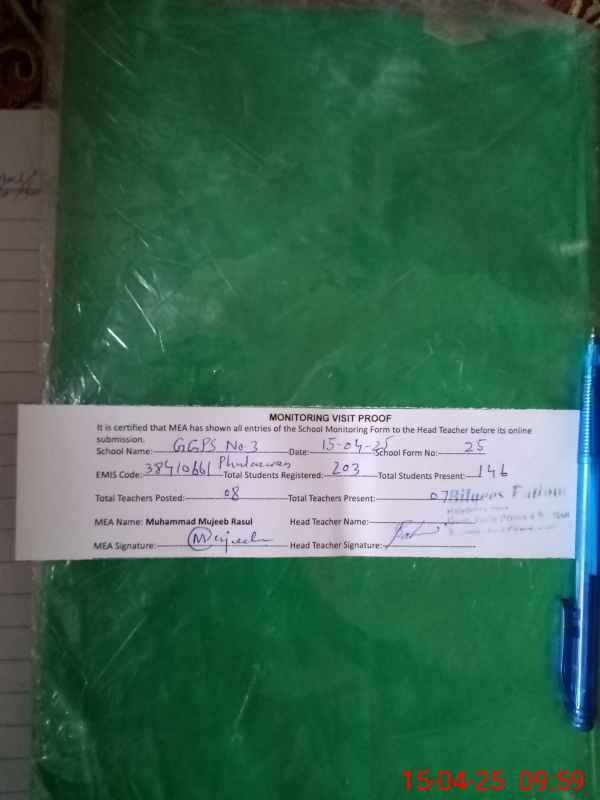 MONITORING VISIT PROOF
It is certified that MEA has shown all entries of the School Monitoring Form to the Head Teacher before its online
submission.
School Name: GGPS No.3 Date: 15-04-25 School Form No: 25
Phularwan
EMIS Code: 38410661 Total Students Registered: 203 Total Students Present: 146
Total Teachers Posted: 08 Total Teachers Present: 07 Bilqees Fatima
MEA Name: Muhammad Mujeeb Rasul Head Teacher Name:
MEA Signature: Mujeeb Head Teacher Signature:
15-04-25 09:59